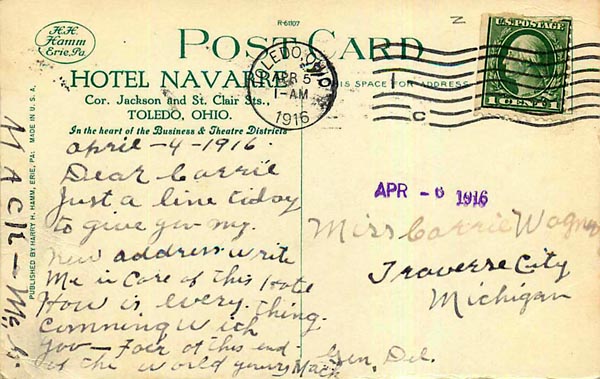 H.H.
Hamm
Erie, Pa.
R-61107
POST CARD
HOTEL NAVARRE
Cor. Jackson and St. Clair Sts.,
TOLEDO, OHIO.
In the heart of the Business & Theatre Districts
THIS SPACE FOR ADDRESS
TOLEDO, OHIO
APR 5
1-AM
1916
C
U.S. POSTAGE
1 CENT 1
MADE IN U.S.A.
PUBLISHED BY HARRY H. HAMM, ERIE, PA.
april - 4 - 1916.
Dear Carrie
Just a line today
to give you my
new address write
me in Care of this Hote
How is every thing.
Comming With
you - of this end.
of the World yours Mack
Mack -
APR - 6 1916
Miss Carrie Wagner
Traverse City
Michigan
Gen. Del.